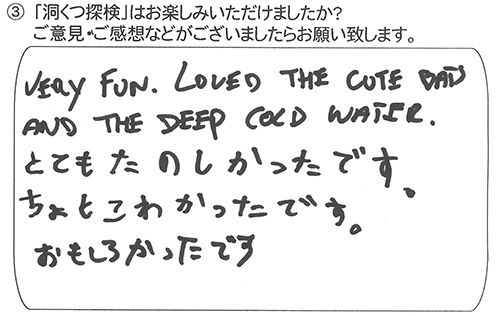 ③ 「洞くつ探検」はお楽しみいただけましたか？
ご意見・ご感想などがございましたらお願い致します。
VERY FUN. LOVED THE CUTE BATS
AND THE DEEP COLD WATER.
とてもたのしかったです。
ちょとこわかったです。
おもしろかったです